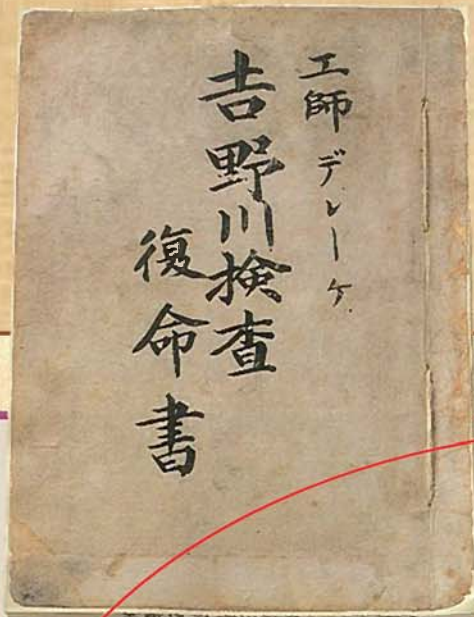 工師 デレーケ
吉野川検査
復命書